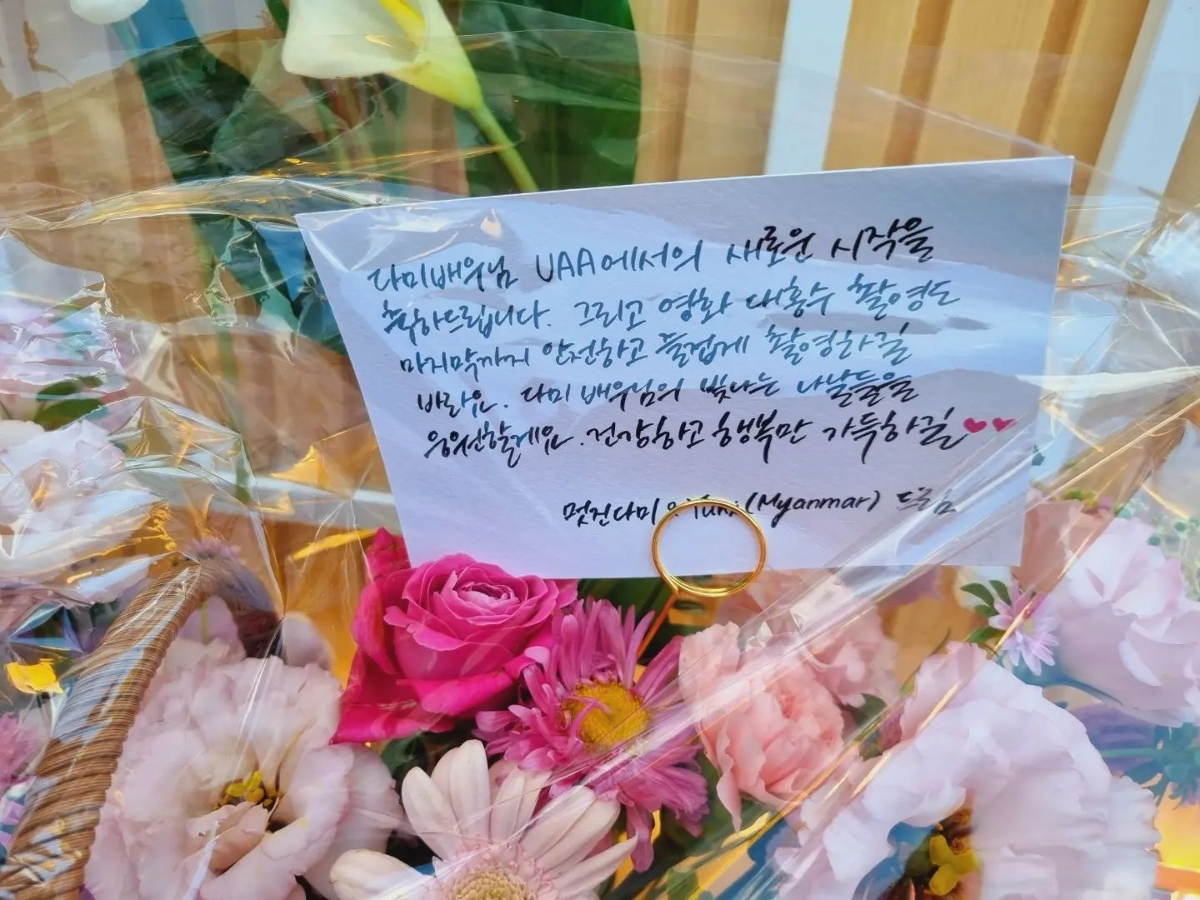 다미배우님 UAA에서의 새로운 시작을
축하드립니다. 그리고 영화 대홍수 촬영도
마지막까지 안전하고 즐겁게 촬영하길
바라요. 다미 배우님의 빛나는 나날들을
응원할게요. 건강하고 행복만 가득하길
멋진다미 (Myanmar) 드림